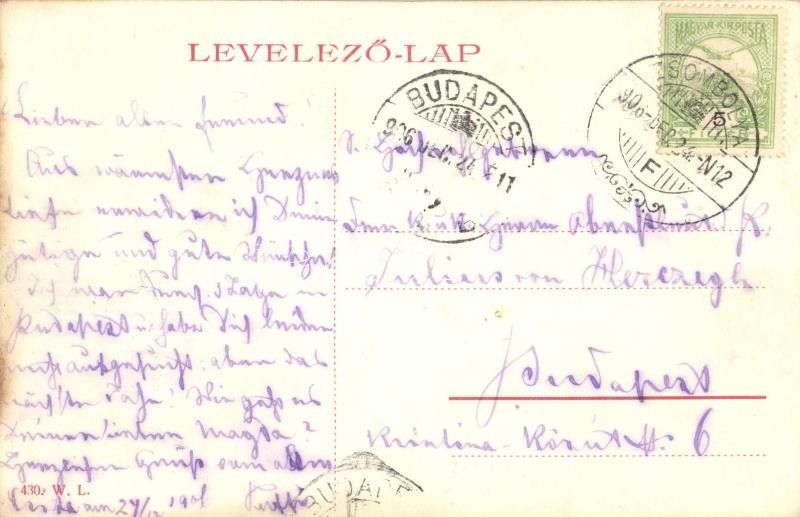 LEVELEZŐ-LAP
MAGYAR KIR. POSTA
BUDAPEST
906 DEC. 24
ZSOMBOLYA
906 DEC. 24. N12
F
Lieber alter Freund!
Aus wärmsten Herzens
Tiefe erwidere ich Deine
gütigen und guten Wünsche.
Ich war durch 3 Tage in
Budapest u. habe Dich leider
nicht aufgesucht, aber das
nächste Jahr! Wie geht es
Deiner lieben Magda?
Herzlichen Gruß vom alten
am 24/12 1906
S. Hochwohlgeboren
dem Herrn
Julius von Herczegh
Budapest
Krisztina-Körút 6
430. W. L.
BUDAPE